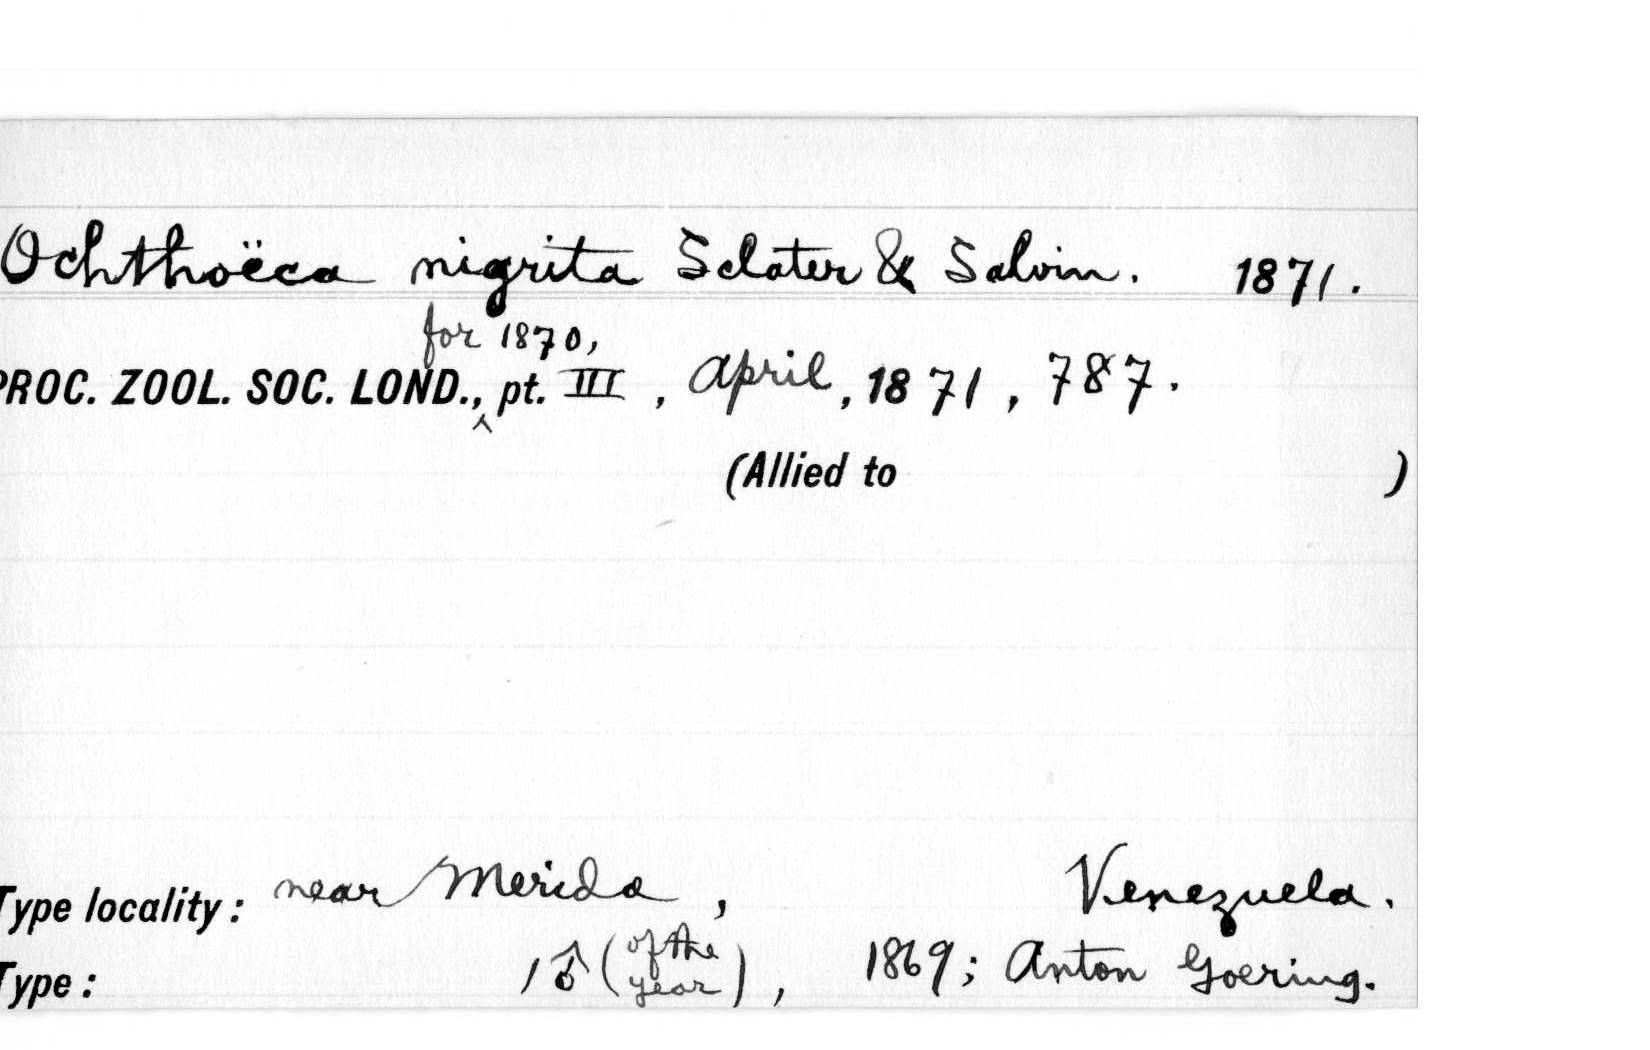 Ochthoëca nigrita Sclater & Salvin. 1871.
for 1870,
PROC. ZOOL. SOC. LOND.,‸ pt. III, April, 1871, 787.
(Allied to )
Type locality: near Merida, Venezuela.
Type: 1♂ (of the year), 1869; Anton Goering.